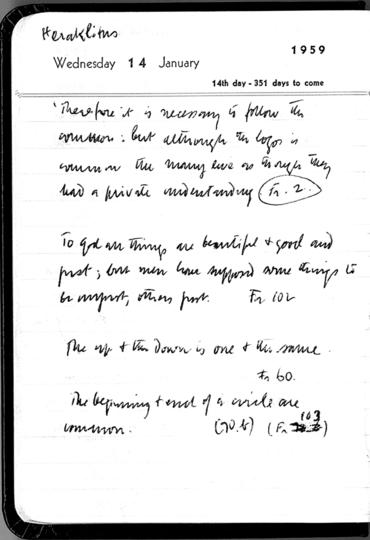 Heraklitus
1959
Wednesday 14 January
14th day - 351 days to come
'Therefore it is necessary to follow the
common: but although the logos is
common the many live as though they
had a private understanding. Fr. 2.
To god all things are beautiful + good and
just; but men have supposed some things to
be unjust, others just. Fr 102
The up + the down is one + the same.
Fr 60.
The beginning + end of a circle are
103
common. (70.b) (Fr